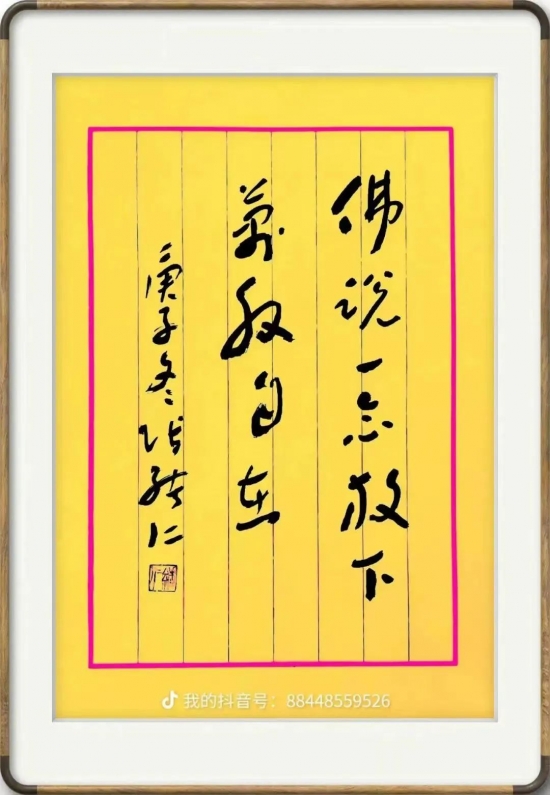 佛說一念放下
萬般自在
庚子冬张仁
我的抖音号：88448559526